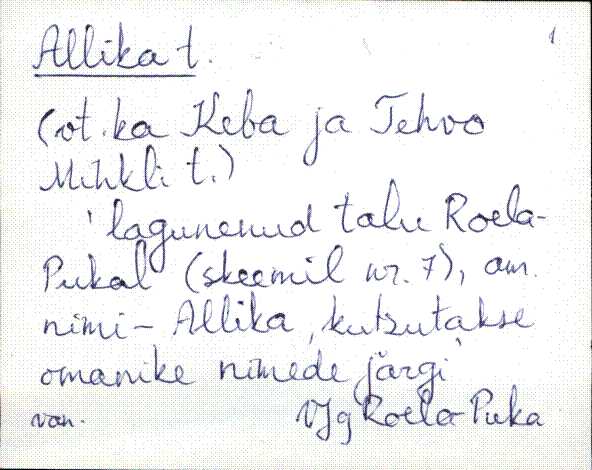 Allika t. 1
(vt. ka Keba ja Tehvo
Mihkli t.)
'lagunenud talu Roela-
Pukal (skeemil nr. 7), am.
nimi - Allika, kutsutakse
omanike nimede järgi
van. VJg Roela-Puka